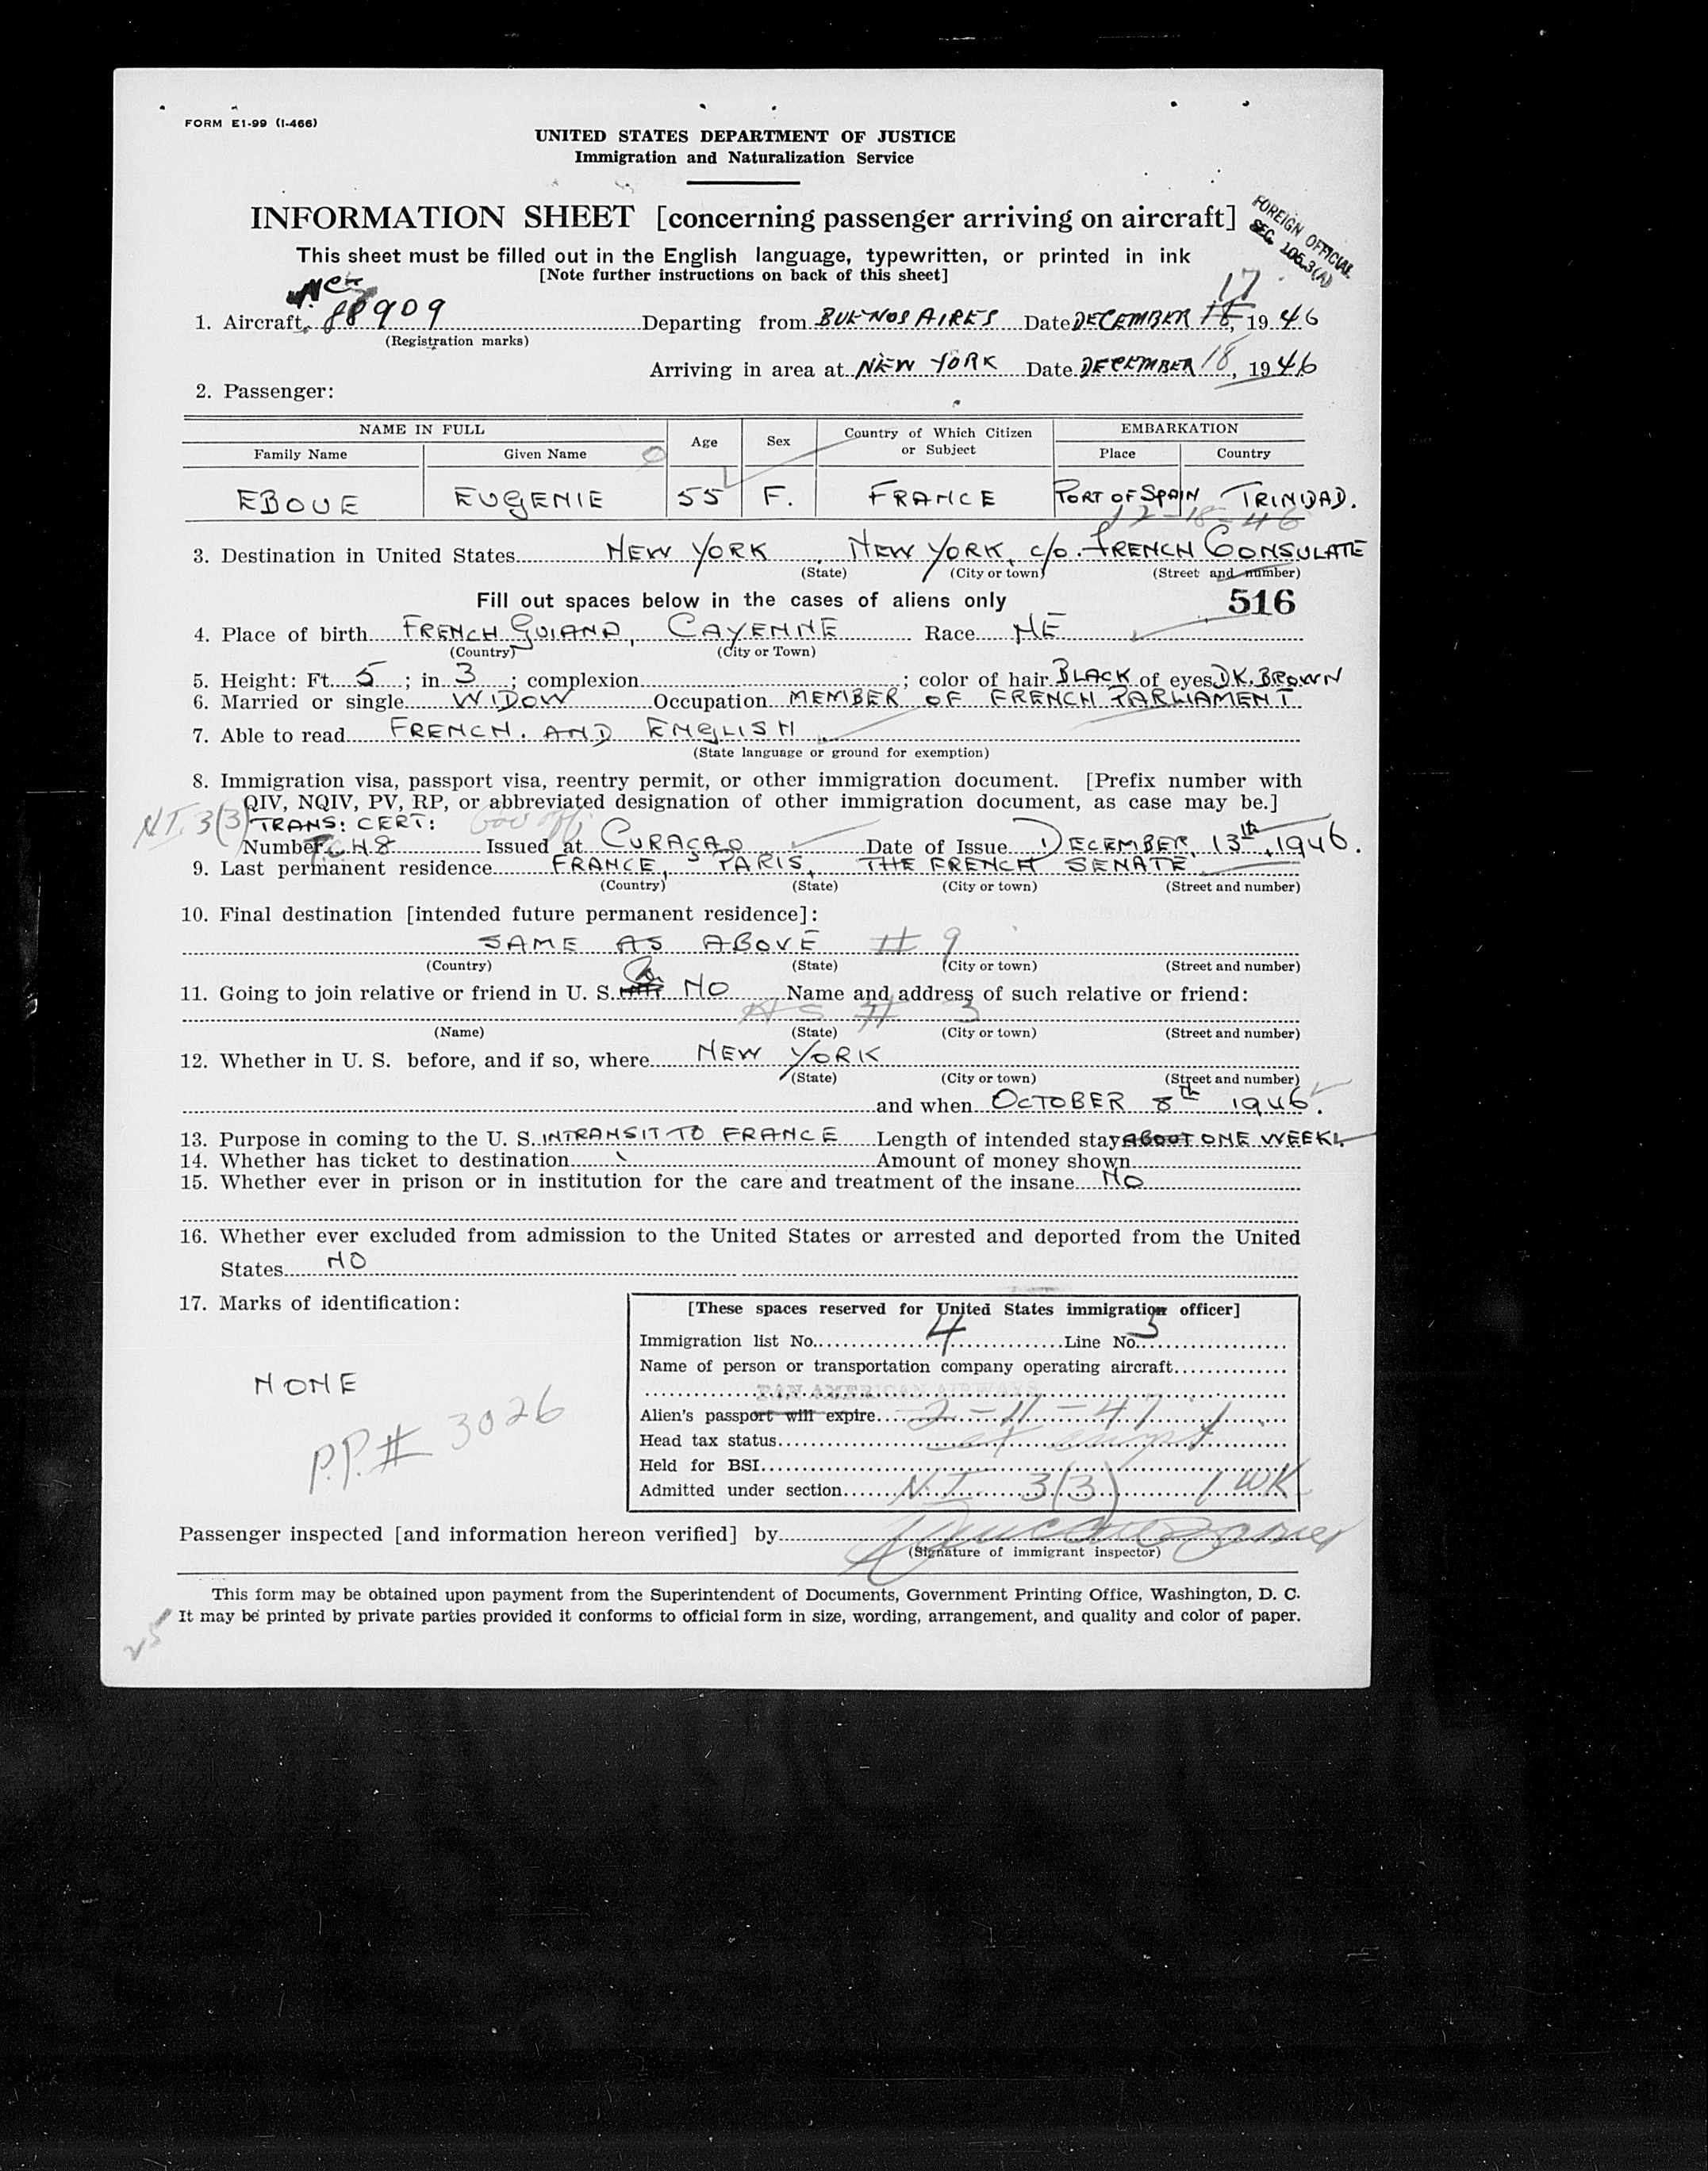 FORM E1-99 (I-466)
UNITED STATES DEPARTMENT OF JUSTICE
Immigration and Naturalization Service
INFORMATION SHEET [concerning passenger arriving on aircraft]
FOREIGN OFFICIAL
SEC. 106.3(A)
This sheet must be filled out in the English language, typewritten, or printed in ink
[Note further instructions on back of this sheet]
17
1. Aircraft 88909 Departing from BUENOS AIRES Date DECEMBER 18, 1946
(Registration marks)
Arriving in area at NEW YORK Date DECEMBER 18, 1946
2. Passenger:
NAME IN FULL Age Sex Country of Which Citizen or Subject EMBARKATION
Family Name Given Name Place Country
EBOUE EUGENIE 55 F. FRANCE PORT OF SPAIN TRINIDAD.
12-18-46
3. Destination in United States NEW YORK, NEW YORK, c/o. FRENCH CONSULATE
(State) (City or town) (Street and number)
Fill out spaces below in the cases of aliens only 516
4. Place of birth FRENCH GUIANA, CAYENNE Race NE
(Country) (City or Town)
5. Height: Ft. 5; in. 3; complexion ; color of hair BLACK of eyes DK. BROWN
6. Married or single WIDOW Occupation MEMBER OF FRENCH PARLIAMENT
7. Able to read FRENCH. AND ENGLISH
(State language or ground for exemption)
8. Immigration visa, passport visa, reentry permit, or other immigration document. [Prefix number with
QIV, NQIV, PV, RP, or abbreviated designation of other immigration document, as case may be.]
N.T. 3(3) TRANS: CERT: Gov off;
Number Issued at CURAÇAO Date of Issue DECEMBER, 13th, 1946.
9. Last permanent residence FRANCE, PARIS, THE FRENCH SENATE
(Country) (State) (City or town) (Street and number)
10. Final destination [intended future permanent residence]:
SAME AS ABOVE # 9
(Country) (State) (City or town) (Street and number)
11. Going to join relative or friend in U. S. NO Name and address of such relative or friend:
AS # 3
(Name) (State) (City or town) (Street and number)
12. Whether in U. S. before, and if so, where NEW YORK
(State) (City or town) (Street and number)
and when OCTOBER 8th 1946.
13. Purpose in coming to the U. S. INTRANSIT TO FRANCE Length of intended stay ABOUT ONE WEEK
14. Whether has ticket to destination Amount of money shown
15. Whether ever in prison or in institution for the care and treatment of the insane NO
16. Whether ever excluded from admission to the United States or arrested and deported from the United
States NO
17. Marks of identification:
NONE
P.P.# 3026
[These spaces reserved for United States immigration officer]
Immigration list No. 4 Line No. 3
Name of person or transportation company operating aircraft
PAN AMERICAN AIRWAYS
Alien's passport will expire 2-11-47
Head tax status
Held for BSI
Admitted under section N.T. 3(3) 1 WK
Passenger inspected [and information hereon verified] by
(Signature of immigrant inspector)
This form may be obtained upon payment from the Superintendent of Documents, Government Printing Office, Washington, D. C.
It may be printed by private parties provided it conforms to official form in size, wording, arrangement, and quality and color of paper.
25